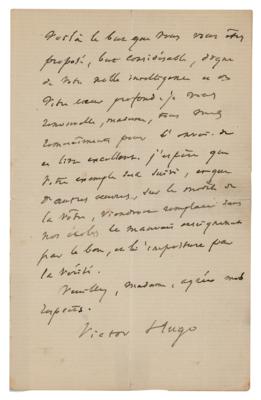 Voilà le but que vous vous êtes
proposé, but considérable, digne
de votre noble intelligence et de
votre cœur profond. je vous
renouvelle, madame, tous mes
remerciements pour l'envoi de
ce livre excellent. j'espère que
votre exemple sera suivi, et que
d'autres œuvres, sur le modèle de
la vôtre, viendront remplacer dans
nos écoles le mauvais enseignement
par le bon, et l'imposture par
la vérité.
Veuillez, madame, agréer mes
respects.
Victor Hugo